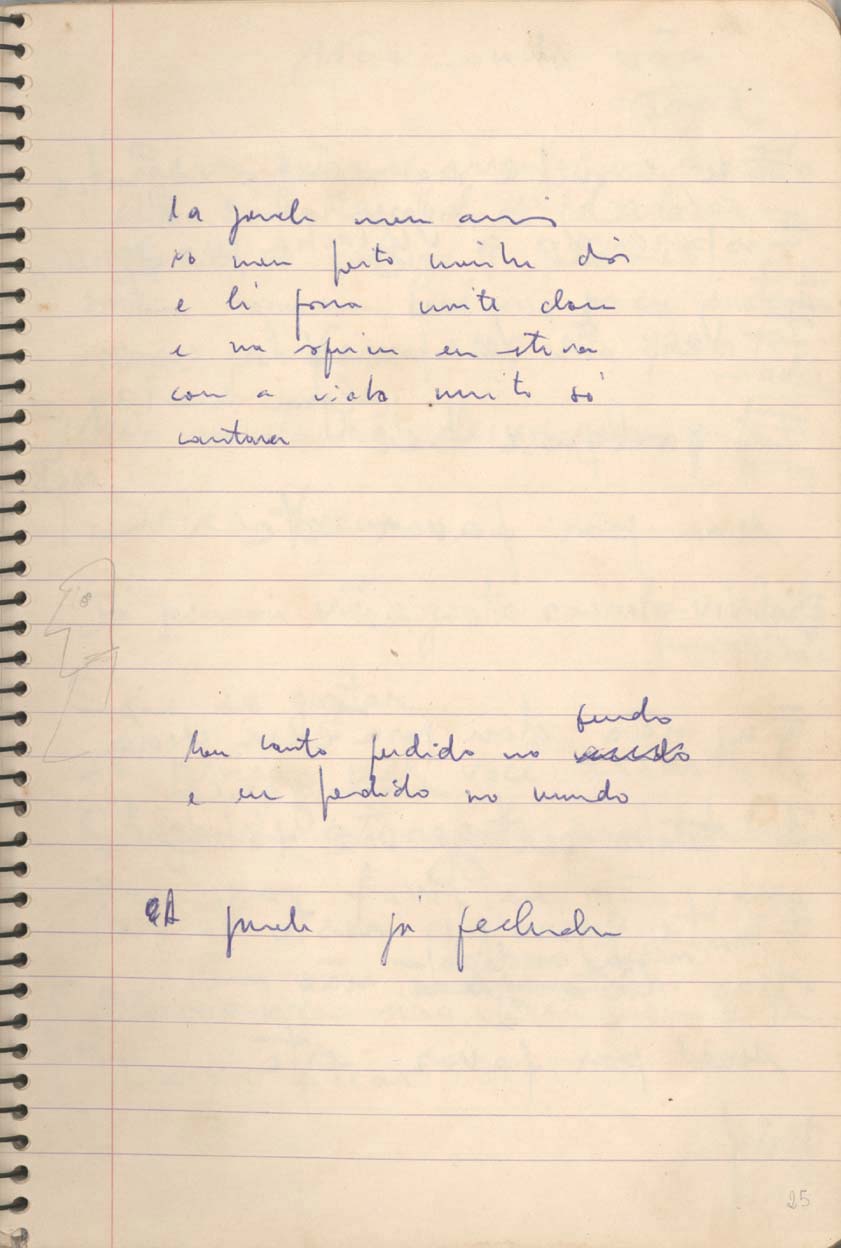 Na janela meu amor
no meu peito minha dor
e lá fora noite clara
e na esquina eu estava
com a viola muito só
cantava
fundo
meu canto perdido no
e eu perdido no mundo
A janela já fechada
25